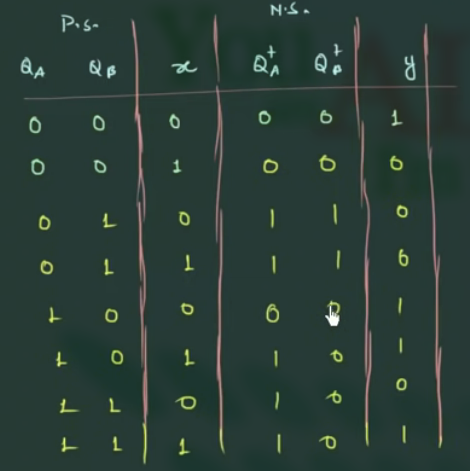 P.S. N.S.
QA QB x QA+ QB+ y
0 0 0 0 0 1
0 0 1 0 0 0
0 1 0 1 1 0
0 1 1 1 1 0
1 0 0 0 0 1
1 0 1 1 0 1
1 1 0 1 0 0
1 1 1 1 0 1